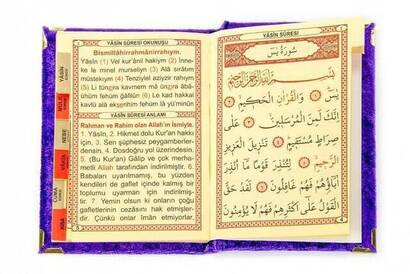 YÂSÎN SÛRESİ OKUNUŞU
Bismillâhirrahmânirrahıym.
Yâsîn (1) Vel kur'ânil hakiym (2) İnne-
ke le minel murseliyn (3) Alâ sırâtım
müstekıym (4) Tenziylel azizir rahıym
(5) Li tünzira kavmem mâ ünzira âbâ-
ühüm fehüm ğâfilûn (6) Le kad hakkal
kavlü alâ ekserihim fehüm lâ yü'minûn
YÂSÎN SÛRESİ ANLAMI
Rahman ve Rahim olan Allah'ın ismiyle.
1. Yâsîn, 2. Hikmet dolu Kur'an hakkı
için, 3. Sen şüphesiz peygamberler-
densin. 4. Dosdoğru yol üzerindesin.
5. (Bu Kur'an) Gâlip ve çok merha-
metli Allah tarafından indirilmiştir. 6.
Babaları uyarılmamış, bu yüzden
kendileri de gaflet içinde kalmış bir
toplumu uyarman için indirilmiş-
tir. 7 Yemin olsun ki onların çoğu
gafletlerinin cezasını hak etmişler-
dir. Çünkü onlar îmân etmiyorlar.
YÂSİN
MÜLK
NEBE
VÂKIA
CUMA
سُورَةُ يٰسٓ
بِسْمِ اللّٰهِ الرَّحْمٰنِ الرَّحِيمِ
يٰسٓ ﴿١﴾ وَالْقُرْاٰنِ الْحَكِيمِ ﴿٢﴾
اِنَّكَ لَمِنَ الْمُرْسَلِينَ ﴿٣﴾ عَلٰى
صِرَاطٍ مُسْتَقِيمٍ ﴿٤﴾ تَنْزِيلَ الْعَزِيزِ
الرَّحِيمِ ﴿٥﴾ لِتُنْذِرَ قَوْمًا مَا اُنْذِرَ
اٰبَاؤُهُمْ فَهُمْ غَافِلُونَ ﴿٦﴾ لَقَدْ حَقَّ
الْقَوْلُ عَلٰى اَكْثَرِهِمْ فَهُمْ لَا يُؤْمِنُونَ